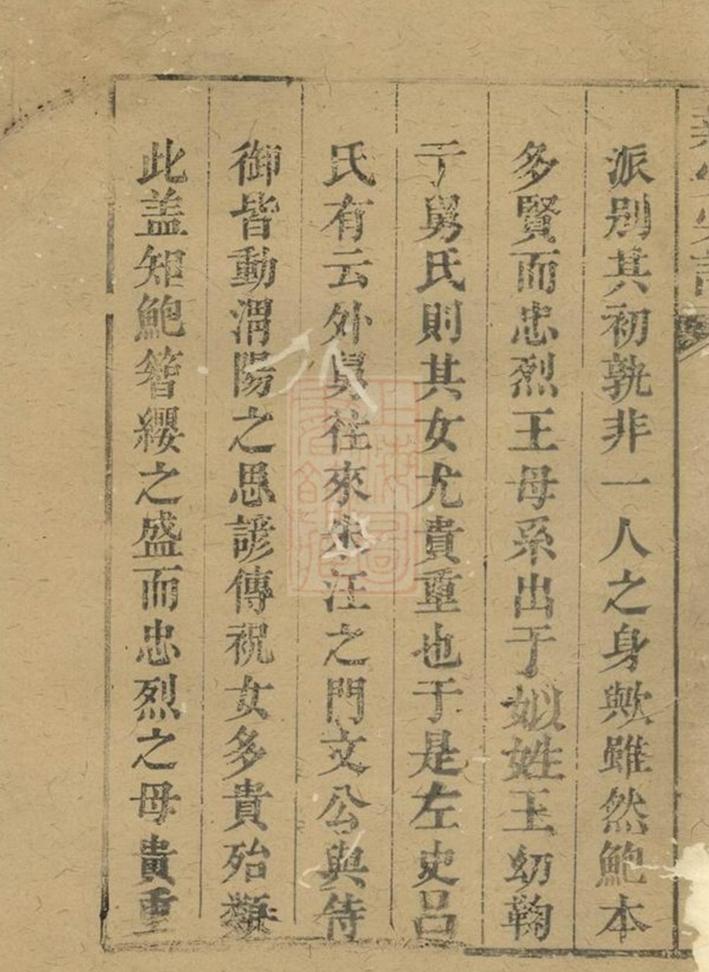 派别其初孰非一人之身歟雖然鮑本
多賢而忠烈王母系出于姒姓王幼鞠
于舅氏則其女尤貴重也于是左史呂
氏有云外舅往來朱汪之門文公與侍
御皆動渭陽之思諺傳祝女多貴殆類
此盖知鮑簪纓之盛而忠烈之母貴重